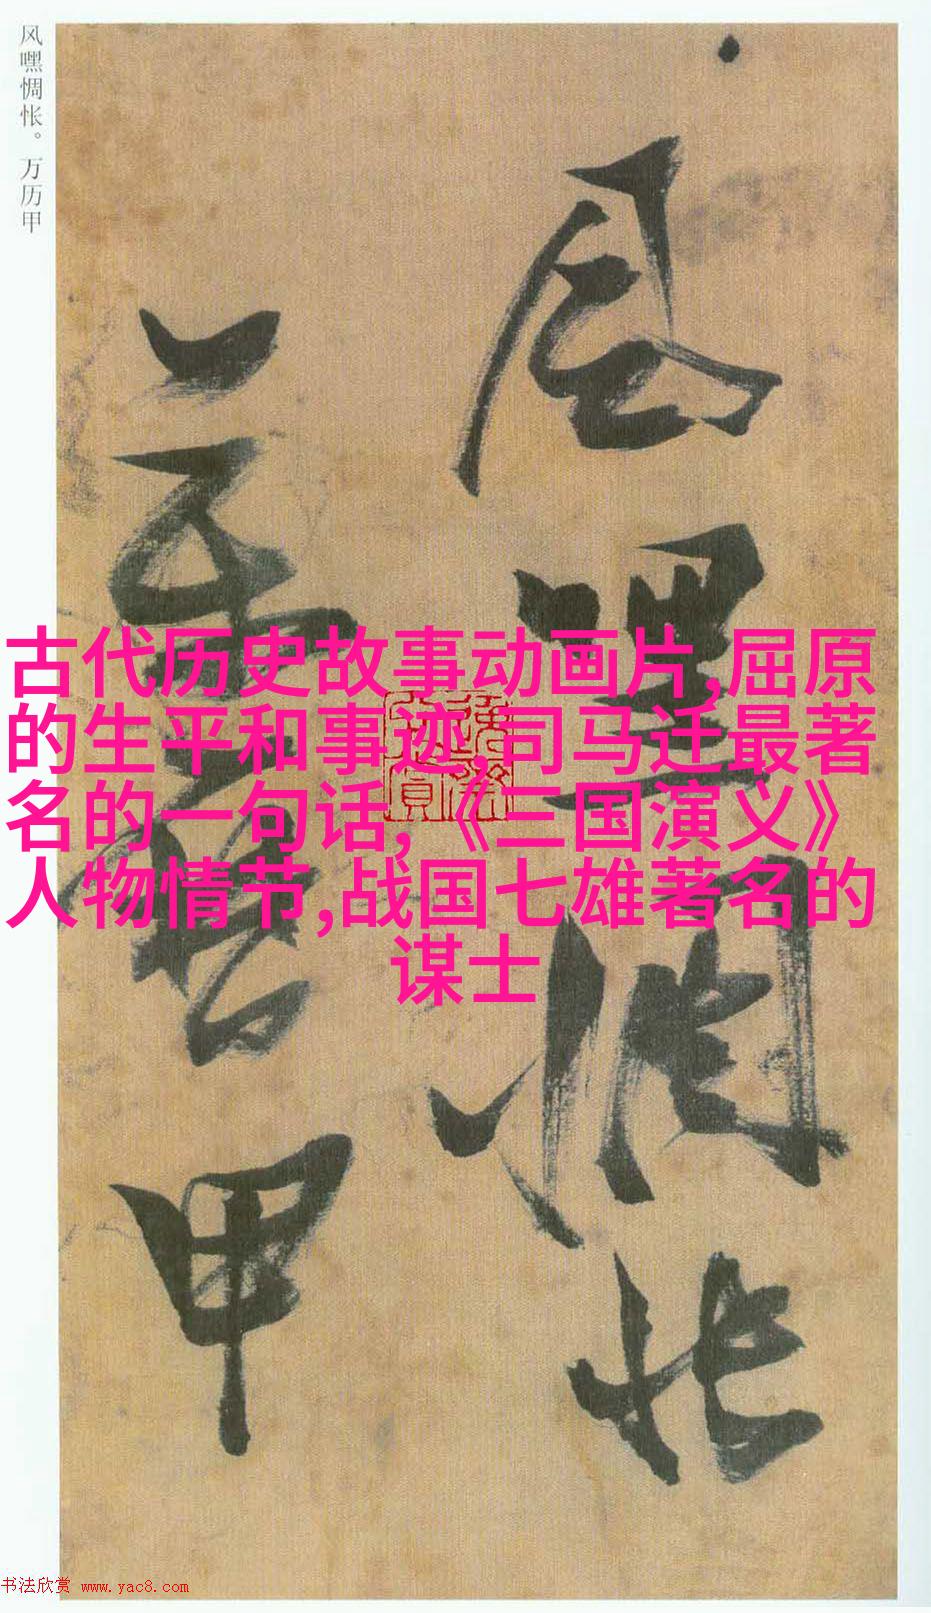 风嘿惆怅。万历甲
风嘿惆怅
万历甲
古代历史故事动画片,屈原
的生平和事迹,司马迁最著
名的一句话,《三国演义》
人物情节,战国七雄著名的
谋士
书法欣赏 www.yac8.com